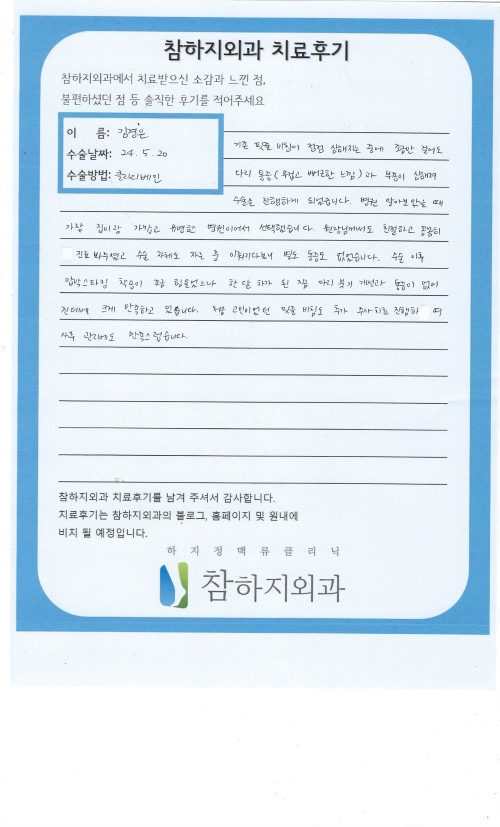 참하지외과 치료후기
참하지외과에서 치료받으신 소감과 느낀 점,
불편하셨던 점 등 솔직한 후기를 적어주세요
이 름: 김경은
수술날짜: 24. 5. 20
수술방법: 클라리베인
기존 핏줄 비침이 점점 심해지는 중에 조금만 걸어도
다리 통증(무겁고 뻐근한 느낌)과 부종이 심해져
수술을 진행하게 되었습니다. 병원 알아보았을 때
가장 집이랑 가깝고 유명한 병원이어서 선택했습니다. 원장님께서도 친절하고 꼼꼼히
진료 봐주셨고 수술 자체도 자는 중 이뤄지다보니 별도 통증도 없었습니다. 수술 이후
압박스타킹 착용이 조금 힘들었으나 한 달 차가 된 지금 다리 붓기 개선과 통증이 없어
진데에 크게 만족하고 있습니다. 제일 고민이었던 핏줄 비침도 추가 주사치료 진행하 며
사후 관리에도 만족스럽습니다.
참하지외과 치료후기를 남겨 주셔서 감사합니다.
치료후기는 참하지외과의 블로그, 홈페이지 및 원내에
비치 될 예정입니다.
하지정맥류클리닉
참하지외과